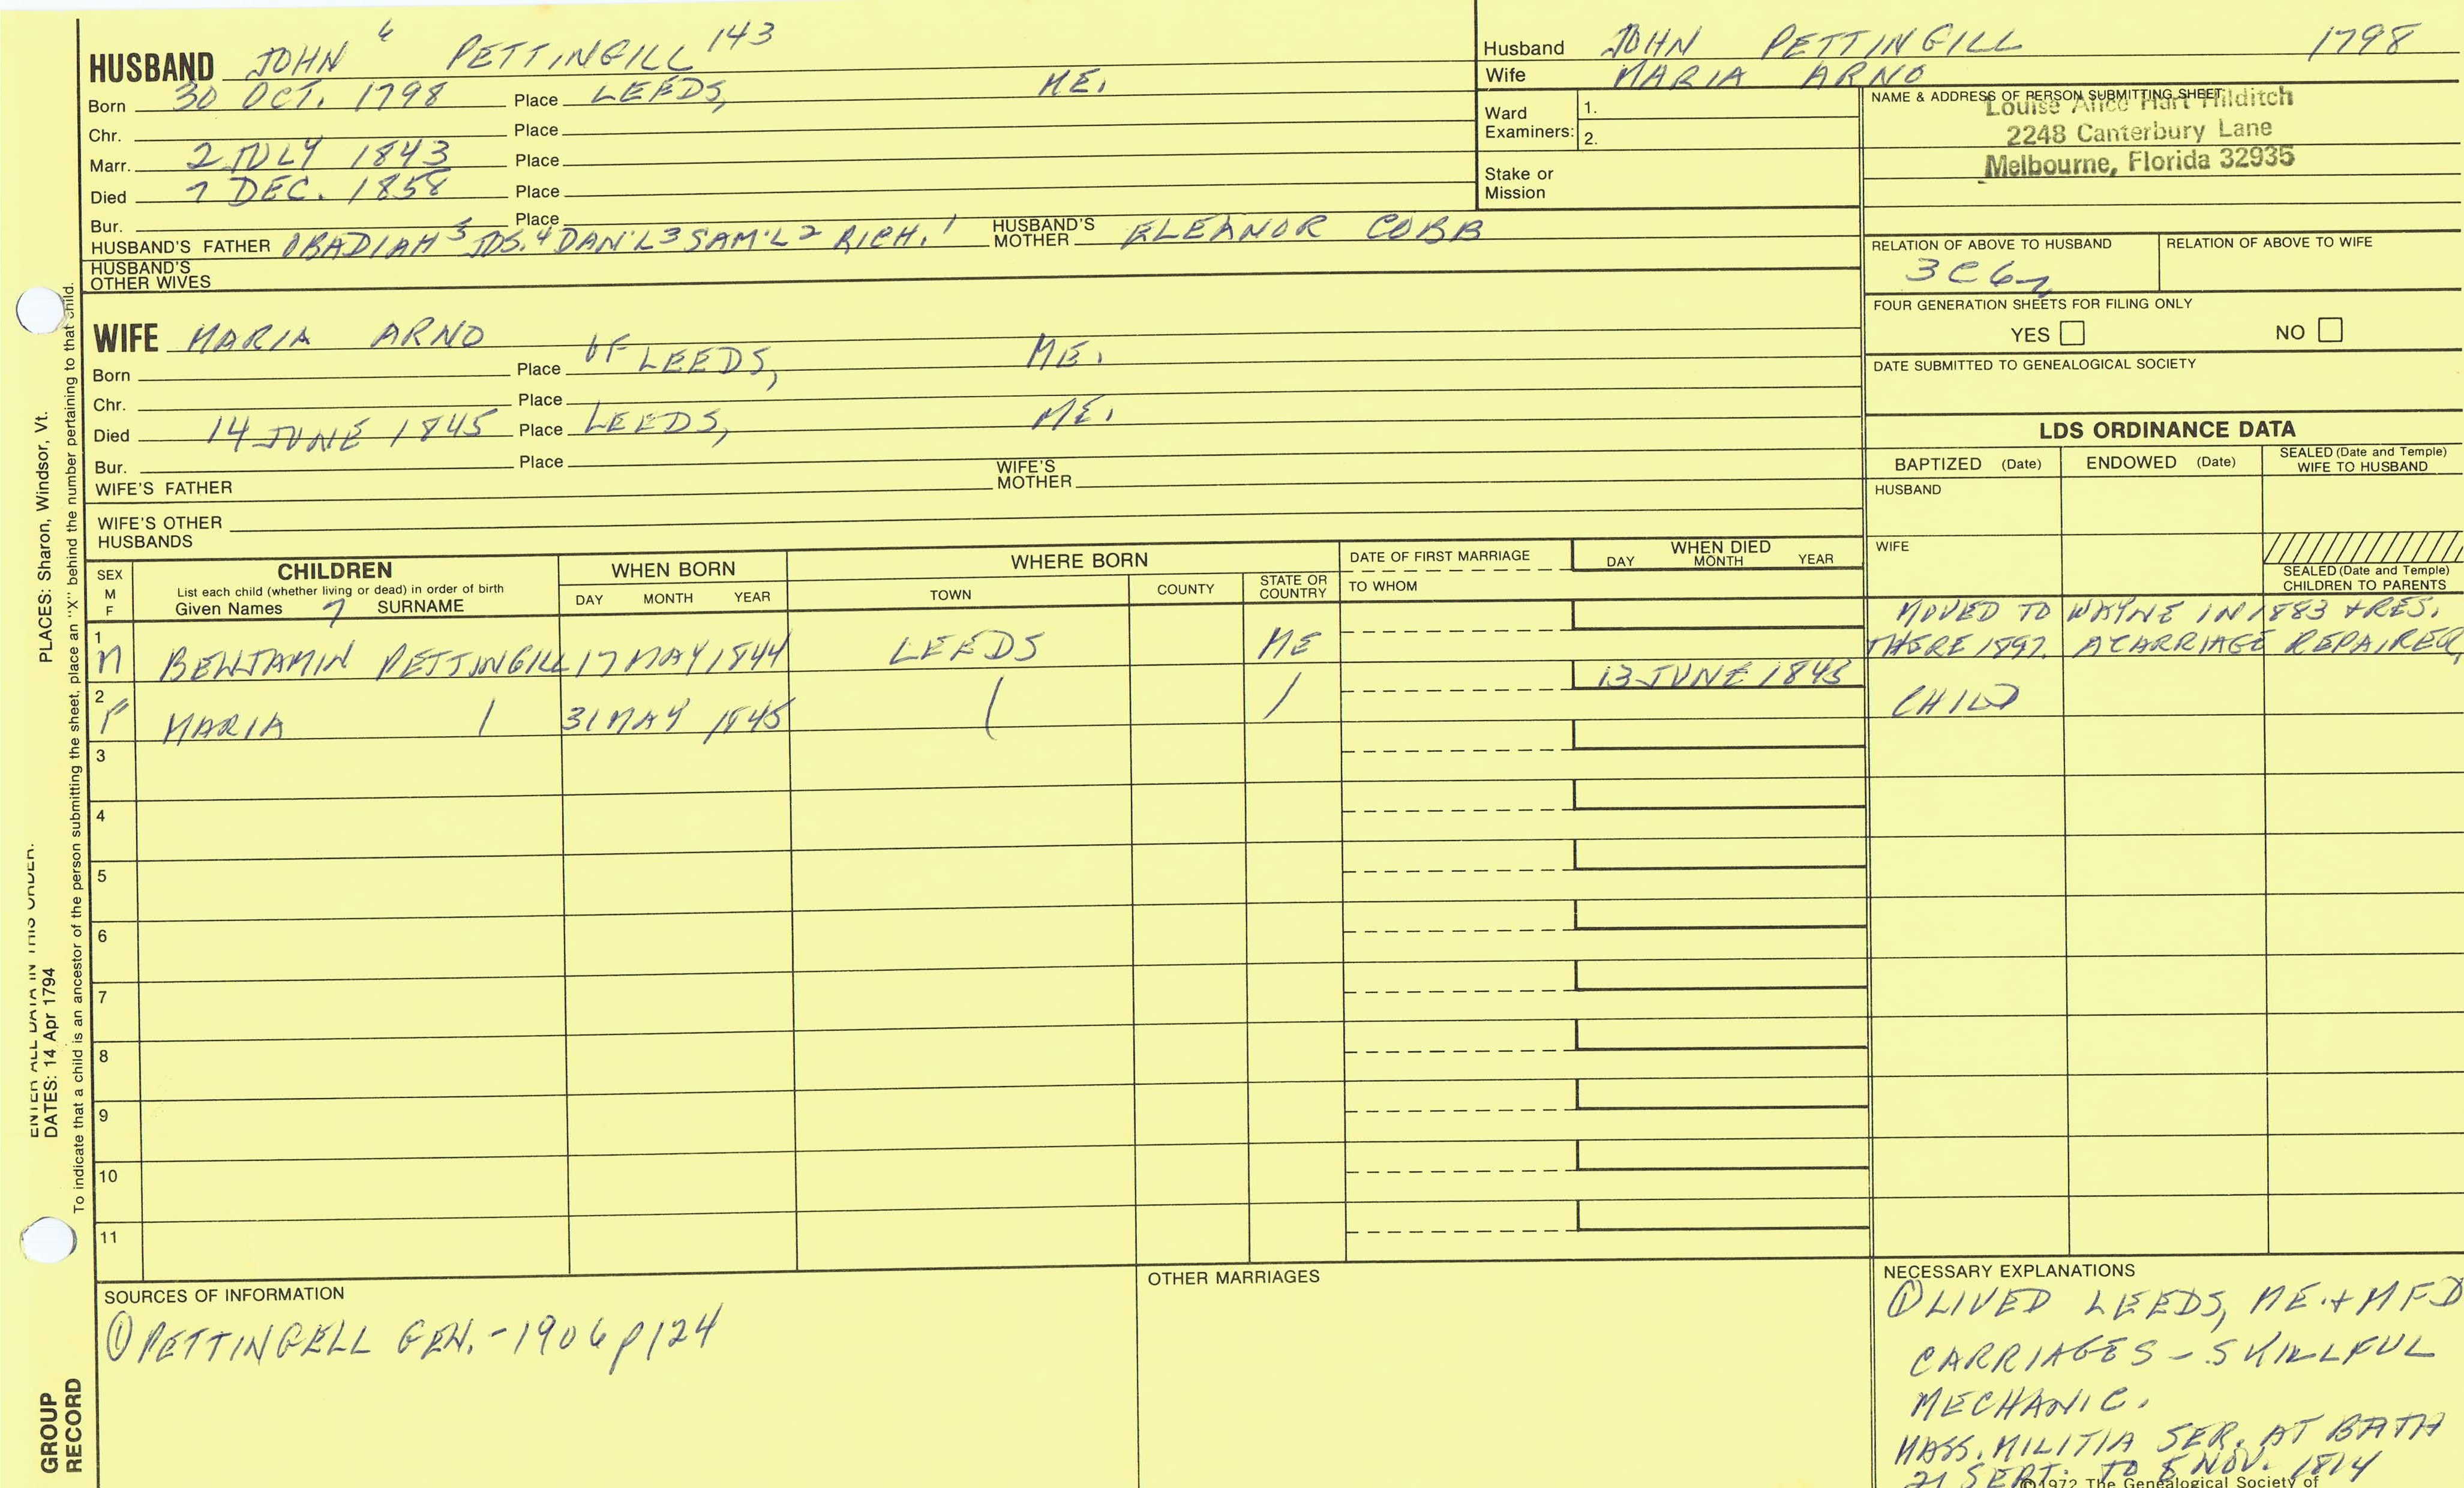 HUSBAND JOHN 6 PETTINGILL 143
Born 30 OCT. 1798 Place LEEDS, ME.
Chr. Place
Marr. 2 JULY 1843 Place
Died 7 DEC. 1858 Place
Bur. Place
HUSBAND'S FATHER OBADIAH 5 JOS. 4 DAN'L 3 SAM'L 2 RICH. 1 HUSBAND'S MOTHER ELEANOR COBB
HUSBAND'S OTHER WIVES
Husband JOHN PETTINGILL 1798
Wife MARIA ARNO
Ward Examiners: 1.
2.
Stake or Mission
NAME & ADDRESS OF PERSON SUBMITTING SHEET
Louise Alice Hart Hilditch
2248 Canterbury Lane
Melbourne, Florida 32935
RELATION OF ABOVE TO HUSBAND RELATION OF ABOVE TO WIFE
3C6r
FOUR GENERATION SHEETS FOR FILING ONLY
YES NO
DATE SUBMITTED TO GENEALOGICAL SOCIETY
WIFE MARIA ARNO
Born Place OF LEEDS, ME.
Chr. Place
Died 14 JUNE 1845 Place LEEDS, ME.
Bur. Place
WIFE'S FATHER WIFE'S MOTHER
WIFE'S OTHER HUSBANDS
LDS ORDINANCE DATA
BAPTIZED (Date) ENDOWED (Date) SEALED (Date and Temple) WIFE TO HUSBAND
HUSBAND
WIFE
SEALED (Date and Temple) CHILDREN TO PARENTS
SEX M F
CHILDREN
List each child (whether living or dead) in order of birth
Given Names 7 SURNAME
WHEN BORN
DAY MONTH YEAR
WHERE BORN
TOWN COUNTY STATE OR COUNTRY
DATE OF FIRST MARRIAGE
TO WHOM
WHEN DIED
DAY MONTH YEAR
1 M BENJAMIN PETTINGILL 17 MAY 1844 LEEDS ME
MOVED TO WAYNE IN 1883 + RES.
THERE 1897. A CARRIAGE REPAIRER
2 F MARIA 31 MAY 1845 13 JUNE 1845 CHILD
3
4
5
6
7
8
9
10
11
SOURCES OF INFORMATION
① PETTINGELL GEN. - 1906 p124
OTHER MARRIAGES
NECESSARY EXPLANATIONS
① LIVED LEEDS, ME. + MFD
CARRIAGES - SKILLFUL
MECHANIC.
MASS. MILITIA SER. AT BATH
21 SEPT. TO 8 NOV. 1814
©1972 The Genealogical Society of
PLACES: Sharon, Windsor, Vt.
ENTER ALL DATA IN THIS ORDER:
DATES: 14 Apr 1794
To indicate that a child is an ancestor of the person submitting the sheet, place an "X" behind the number pertaining to that child.
GROUP
RECORD